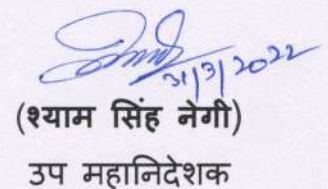 31/3/2022
(श्याम सिंह नेगी)
उप महानिदेशक